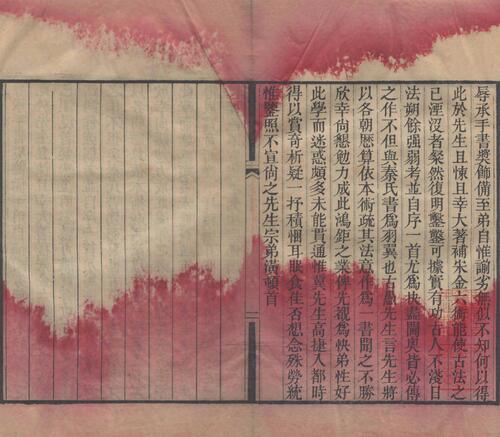 辱承手書奬飾備至弟自惟謭劣無似不知何以得
此於先生且悚且幸大著補宋金六術能使古法之
已湮沒者粲然復明鑿鑿可據實有功古人不淺日
法朔餘强弱考並自序一首尤爲抉盡閫奧皆必傳
之作不但與秦氏書爲羽翼也古愚先生言先生將
以各朝厯算依本術疏其法意作爲一書聞之不勝
欣幸尙懇勉力成此鴻鉅之業俾先覩爲快弟性好
此學而迷惑頗多未能貫通惟冀先生高捷入都時
得以賞奇析疑一抒積悃耳眠食佳否想念殊勞統
惟鑒照不宣尙之先生宗弟潢頓首
二